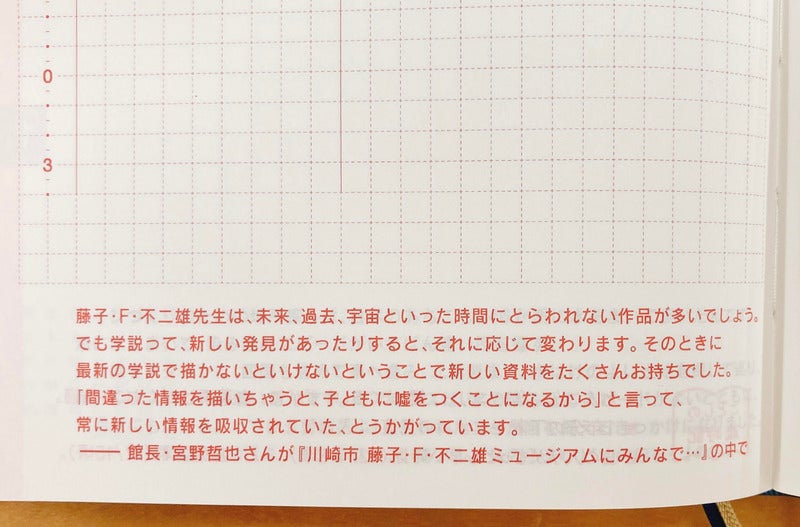 0
3
藤子・F・不二雄先生は、未来、過去、宇宙といった時間にとらわれない作品が多いでしょう。
でも学説って、新しい発見があったりすると、それに応じて変わります。そのときに
最新の学説で描かないといけないということで新しい資料をたくさんお持ちでした。
「間違った情報を描いちゃうと、子どもに嘘をつくことになるから」と言って、
常に新しい情報を吸収されていた、とうかがっています。
―― 館長・宮野哲也さんが『川崎市 藤子・F・不二雄ミュージアムにみんなで…』の中で